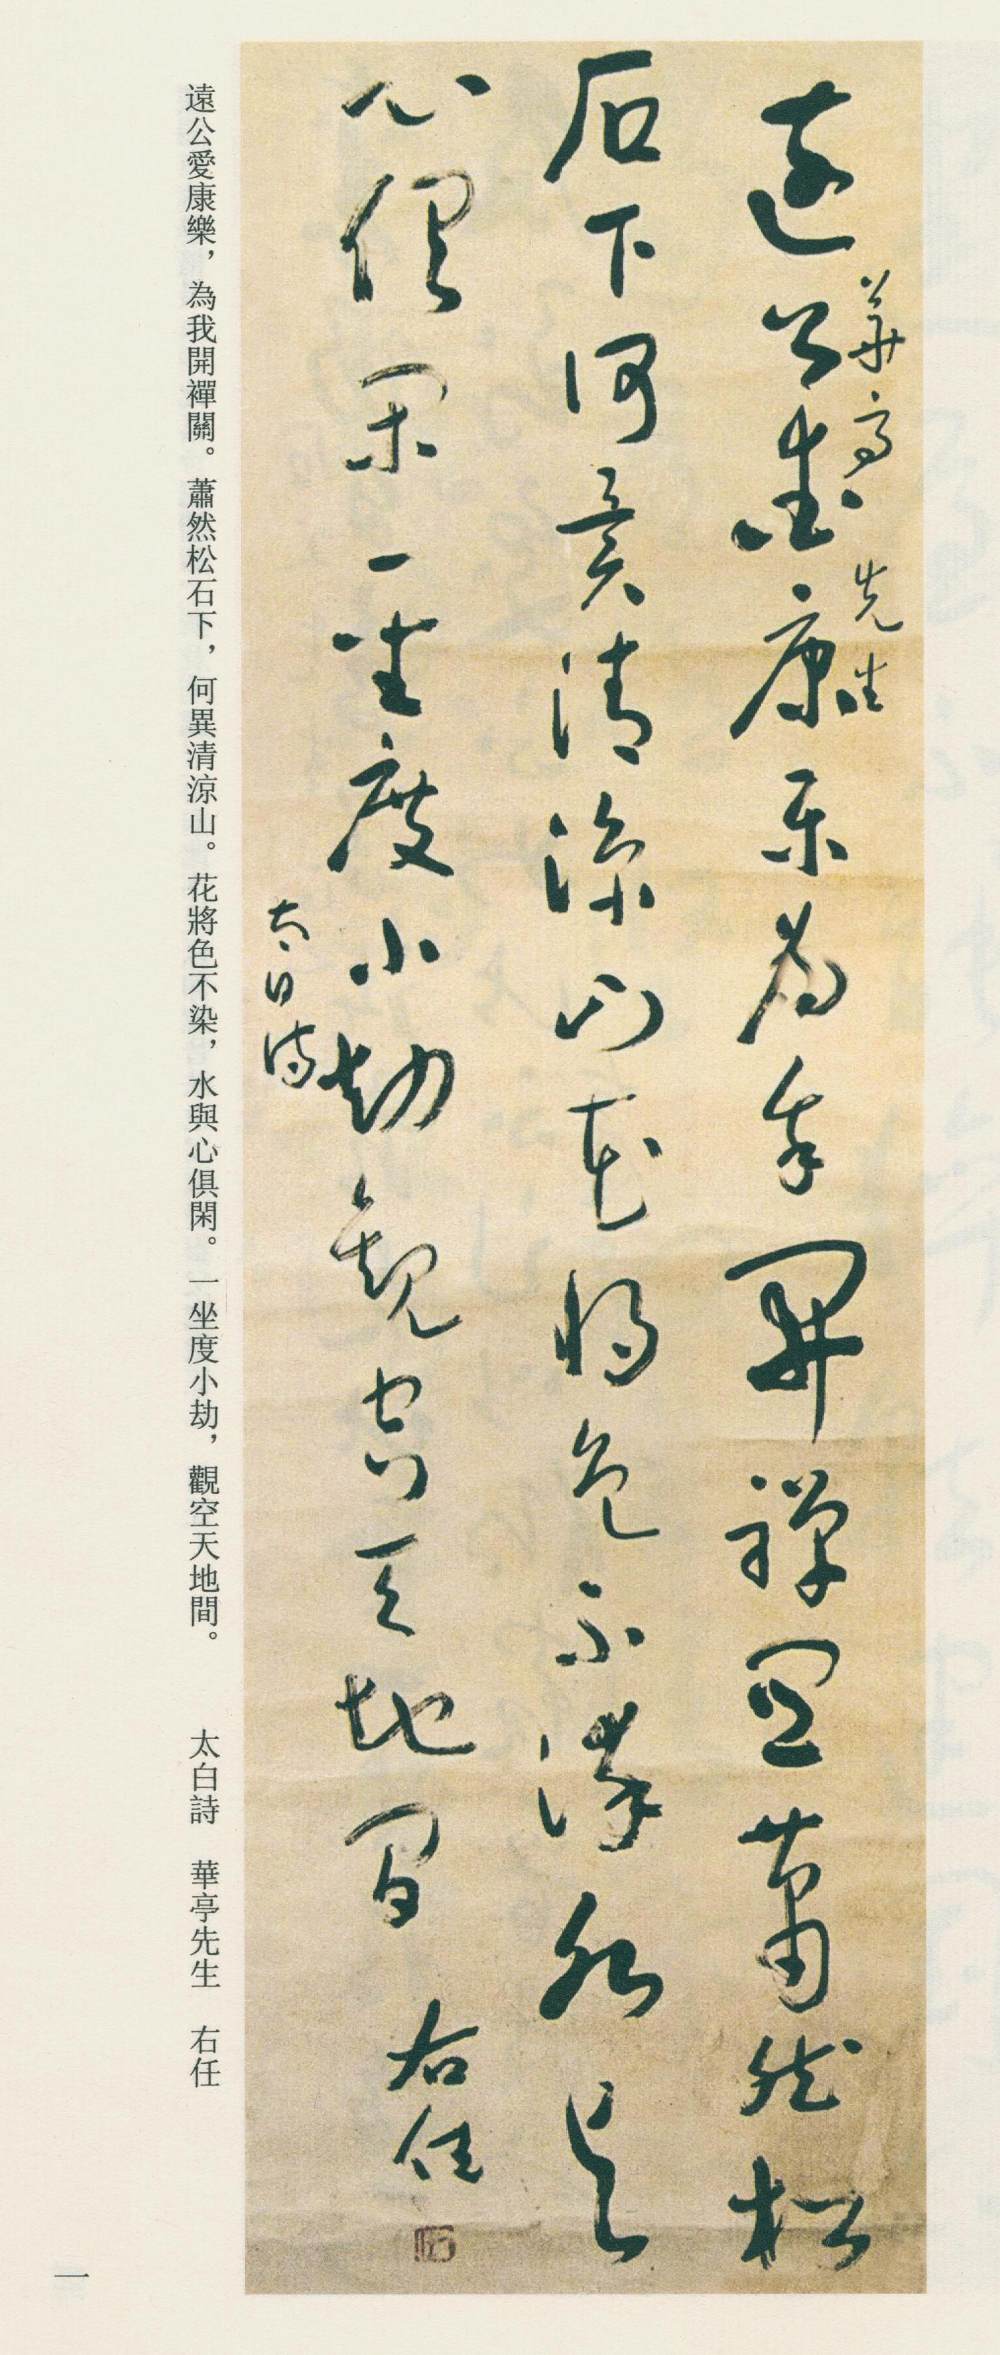 遠公愛康樂為我開禪關蕭然松
石下何異清涼山花將色不染水與
心俱閑一坐度小劫觀空天地間 右任
華亭先生
太白詩
遠公愛康樂，為我開禪關。蕭然松石下，何異清涼山。花將色不染，水與心俱閑。一坐度小劫，觀空天地間。 太白詩 華亭先生 右任
一